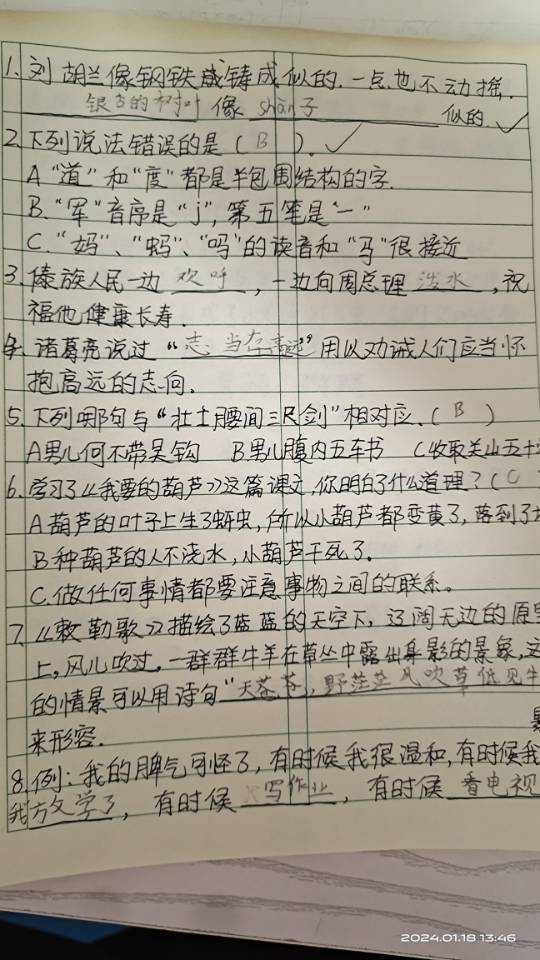 1. 刘胡兰像钢铁盛铸成似的.一点也不动摇.
银杏的树叶 像 shàn子 似的.
2.下列说法错误的是(B).
A “道”和“度”都是半包围结构的字.
B.“军”音序是“j”,第五笔是“一”
C.“妈”、“蚂”、“吗”的读音和“马”很接近
3.傣族人民一边 欢呼 ,一边向周总理 泼水 ,祝
福他健康长寿.
4. 诸葛亮说过“志当存高远”用以劝诫人们应当怀
抱高远的志向.
5.下列哪句与“壮士腰间三尺剑”相对应.(B)
A男儿何不带吴钩 B男儿腹内五车书 C收取关山五十
6.学习了《我要的葫芦》这篇课文,你明白了什么道理?(C
A葫芦的叶子上生了蚜虫,所以小葫芦都变黄了,落到了
B种葫芦的人不浇水,小葫芦干死了.
C.做任何事情都要注意事物之间的联系。
7.《敕勒歌》描绘了蓝蓝的天空下,辽阔无边的原
上,风儿吹过,一群群牛羊在草丛中露出身影的景象,这
的情景可以用诗句“天苍苍,野茫茫风吹草低见牛
来形容.
8.例:我的脾气可怪了,有时候我很温和,有时候我
我放学了,有时候 写作业 ,有时候 看电视
2024.01.18 13:46